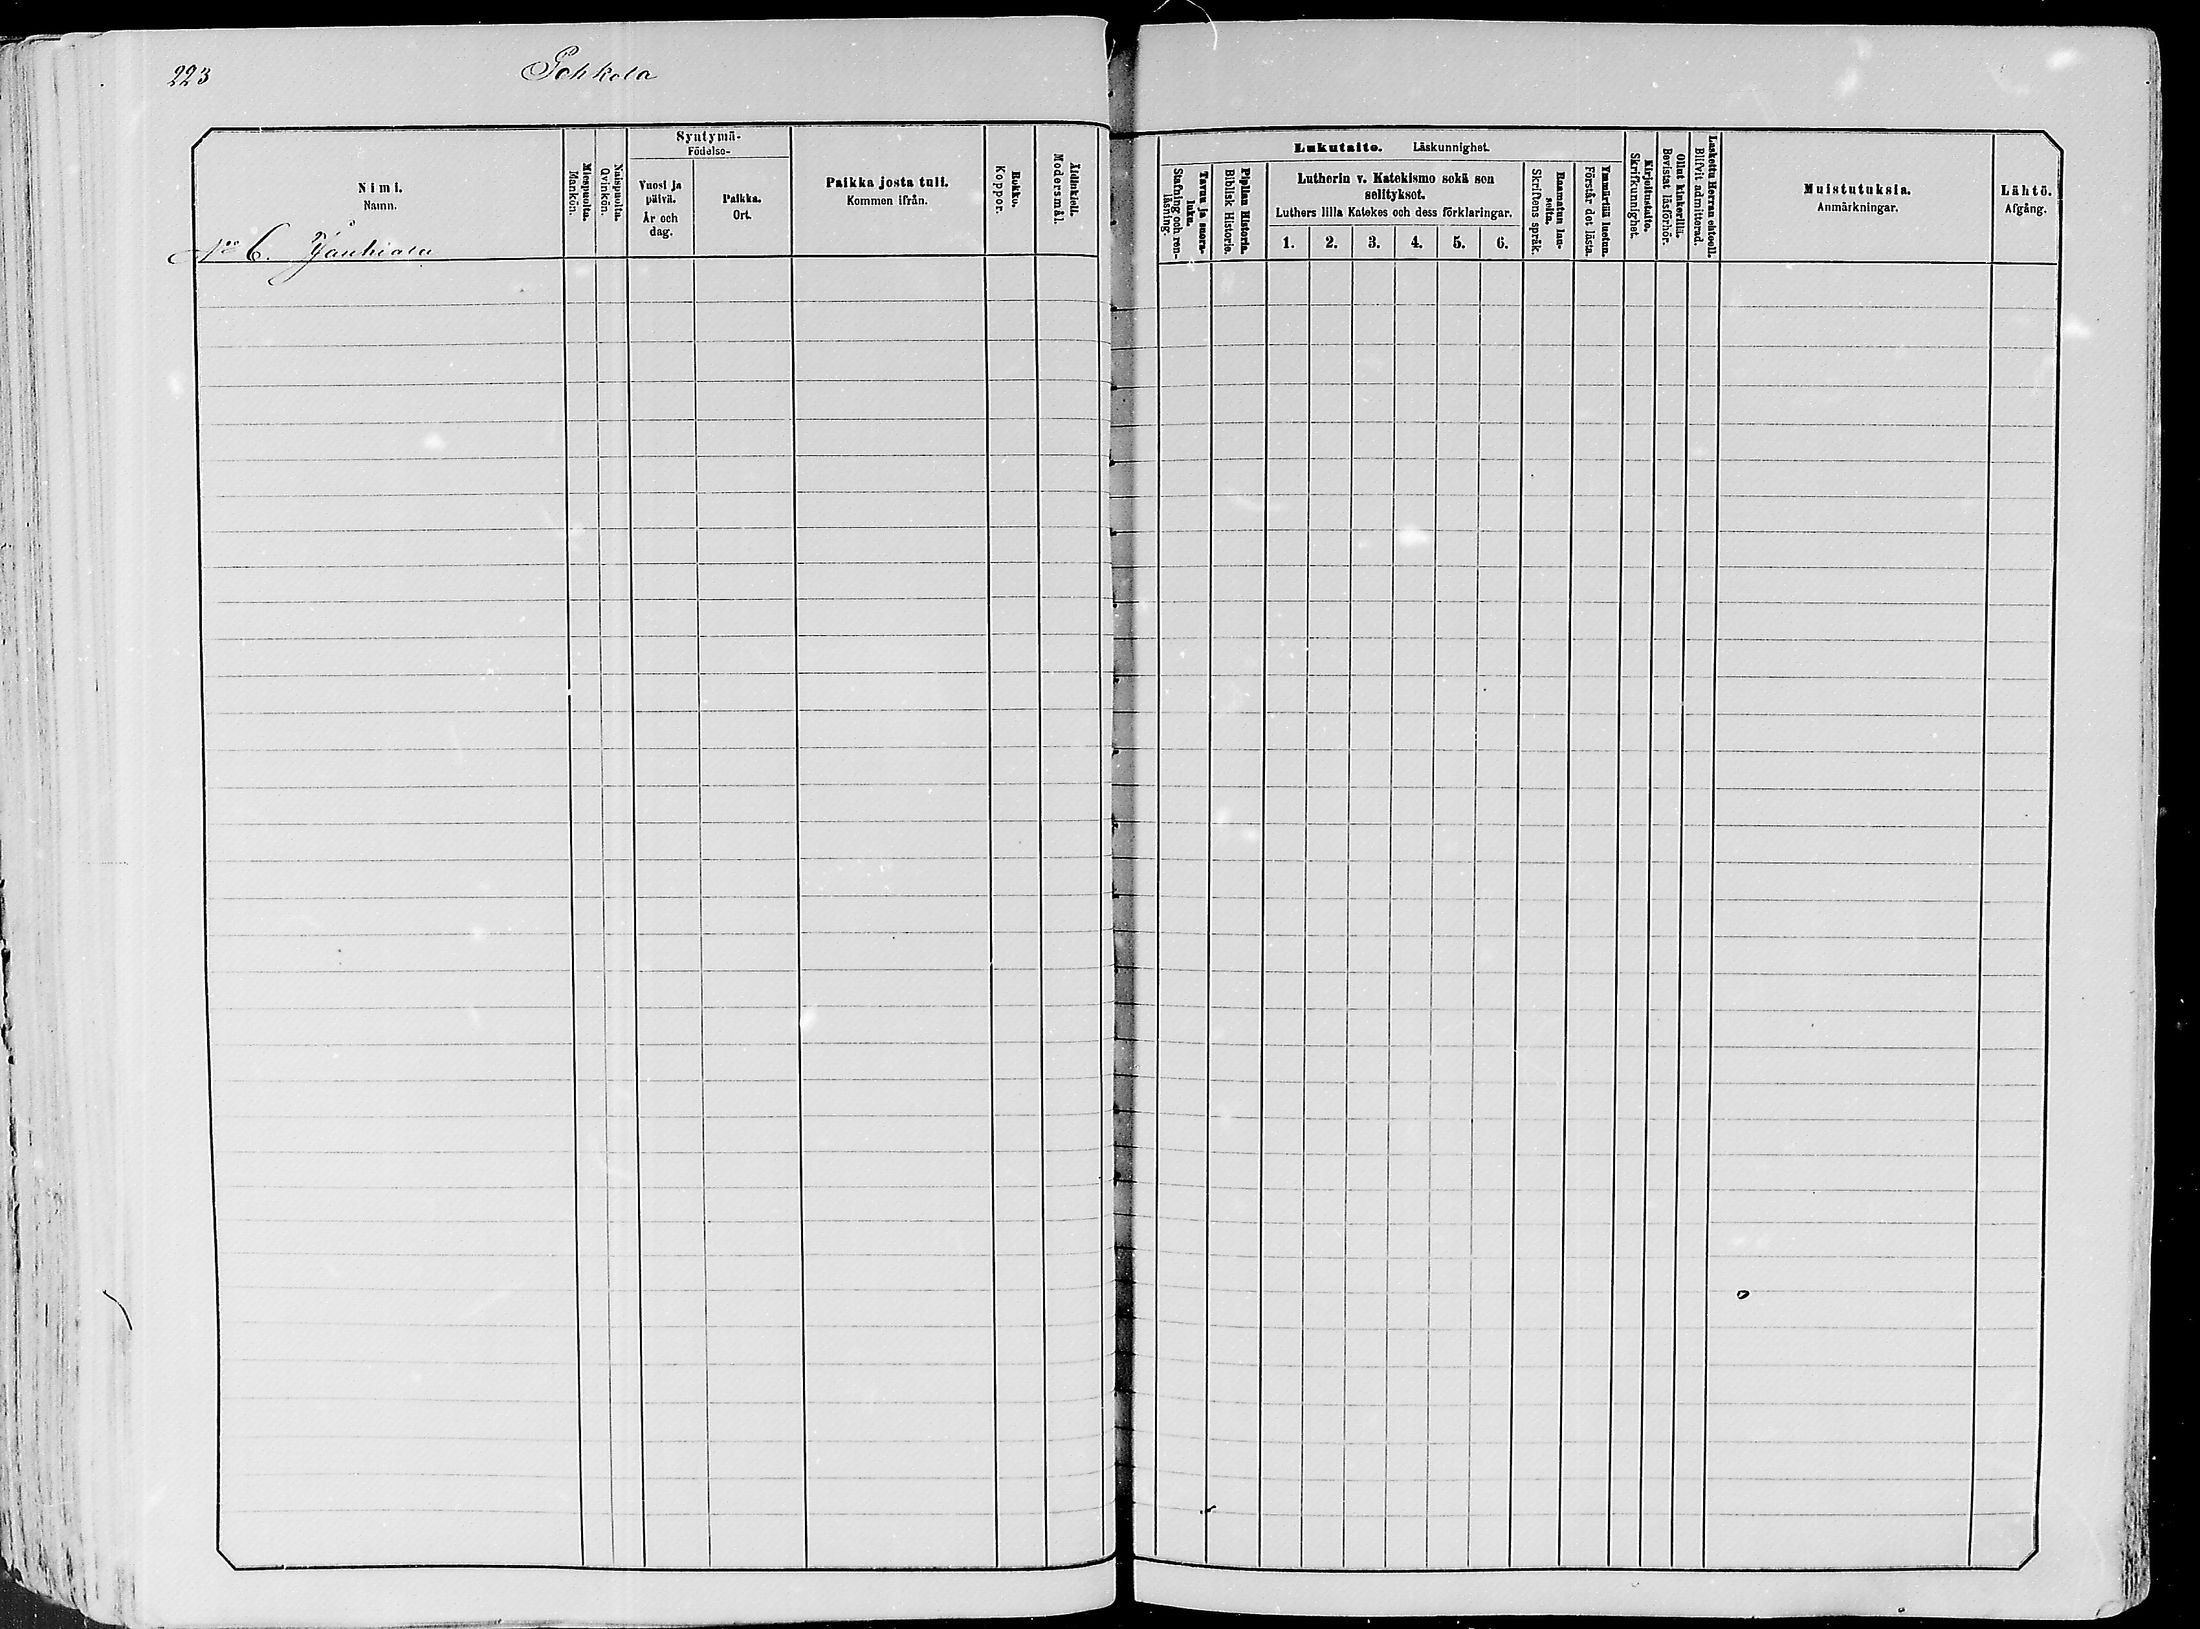 223
Pohkola
Nimi.
Namn.
Miespuolta.
Mankön.
Naispuolta.
Qvinkön.
Syntymä-
Födelse-
Vuosi ja
päivä.
År och
dag.
Paikka.
Ort.
Paikka josta tuli.
Kommen ifrån.
Rokko.
Koppor.
Äidinkieli.
Modersmål.
No 6.
Lukutaito. Läskunnighet.
Tavuu ja suora-
luku.
Stafning och ren-
läsning.
Piplian Historia.
Biblisk Historie.
Lutherin v. Katekismo sekä sen
selitykset.
Luthers lilla Katekes och dess förklaringar.
1. 2. 3. 4. 5. 6.
Raamatun lau-
seita.
Skriftens språk.
Ymmärtää luetun.
Förstår det lästa.
Kirjoitustaito.
Skrifkunnighet.
Ollut kinkerillä.
Bevistat läsförhör.
Laskettu Herran ehtooll.
Blifvit admitterad.
Muistutuksia.
Anmärkningar.
Lähtö.
Afgång.